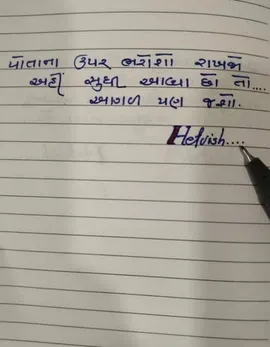 પોતાના ઉપર ભરોશો રાખજો
અહીં સુધી આવ્યા છો તો....
આગળ પણ જશો.
Hetvish....